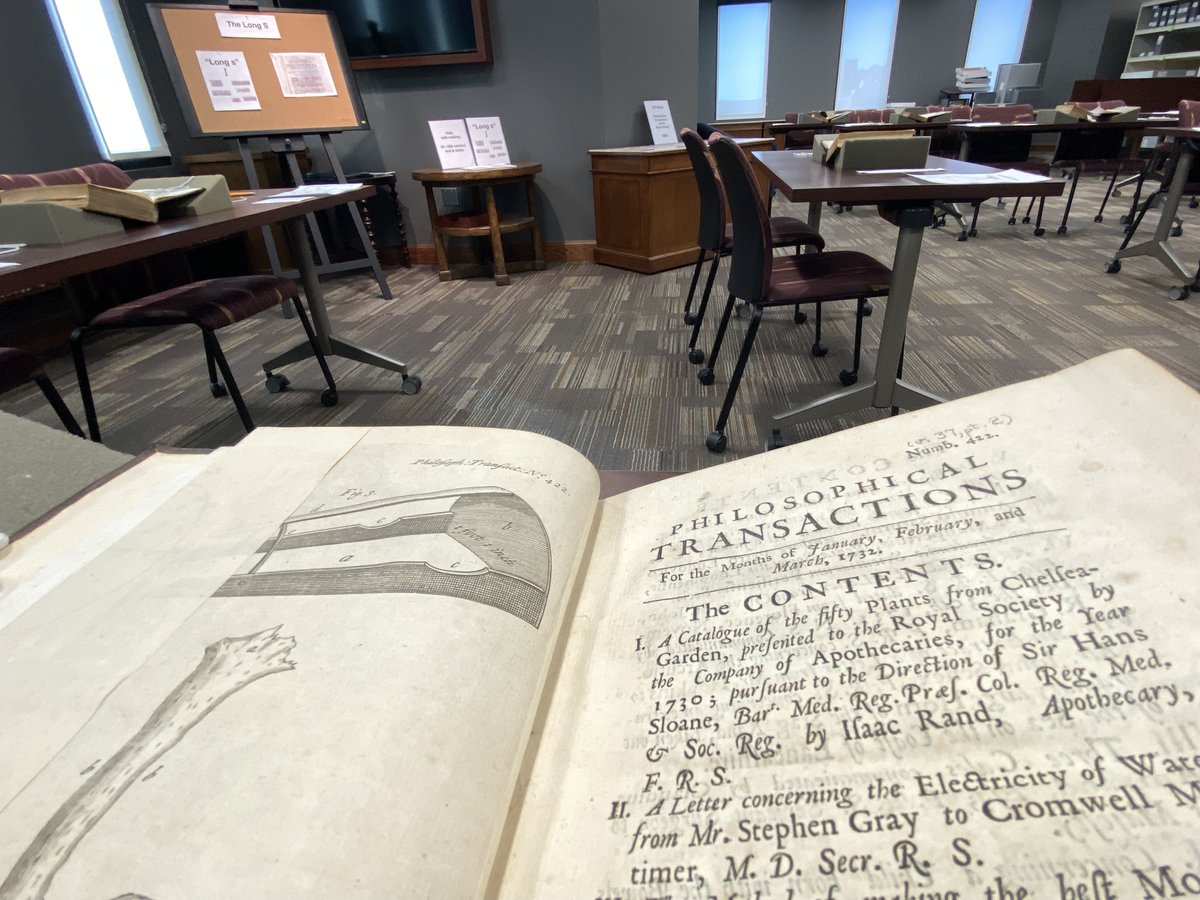 The Long S
"Long s"
ſ
"Long s"
Philosoph. Transact. No. 422.
Fig. 3.
d
c
b
a
c
1 foot. 1 inch
b
b
(v. 37, pt. 2)
Numb. 422.
PHILOSOPHICAL
TRANSACTIONS
For the Months of January, February, and
March, 1732.
The CONTENTS.
I. A Catalogue of the fifty Plants from Chelſea-
Garden, preſented to the Royal Society by
the Company of Apothecaries, for the Year
1730; purſuant to the Direction of Sir Hans
Sloane, Barᵗ. Med. Reg. Præſ. Col. Reg. Med.
& Soc. Reg. by Iſaac Rand, Apothecary,
F. R. S.
II. A Letter concerning the Electricity of Wate
from Mr. Stephen Gray to Cromwell M
timer, M. D. Secr. R. S.
of making the beſt Mo